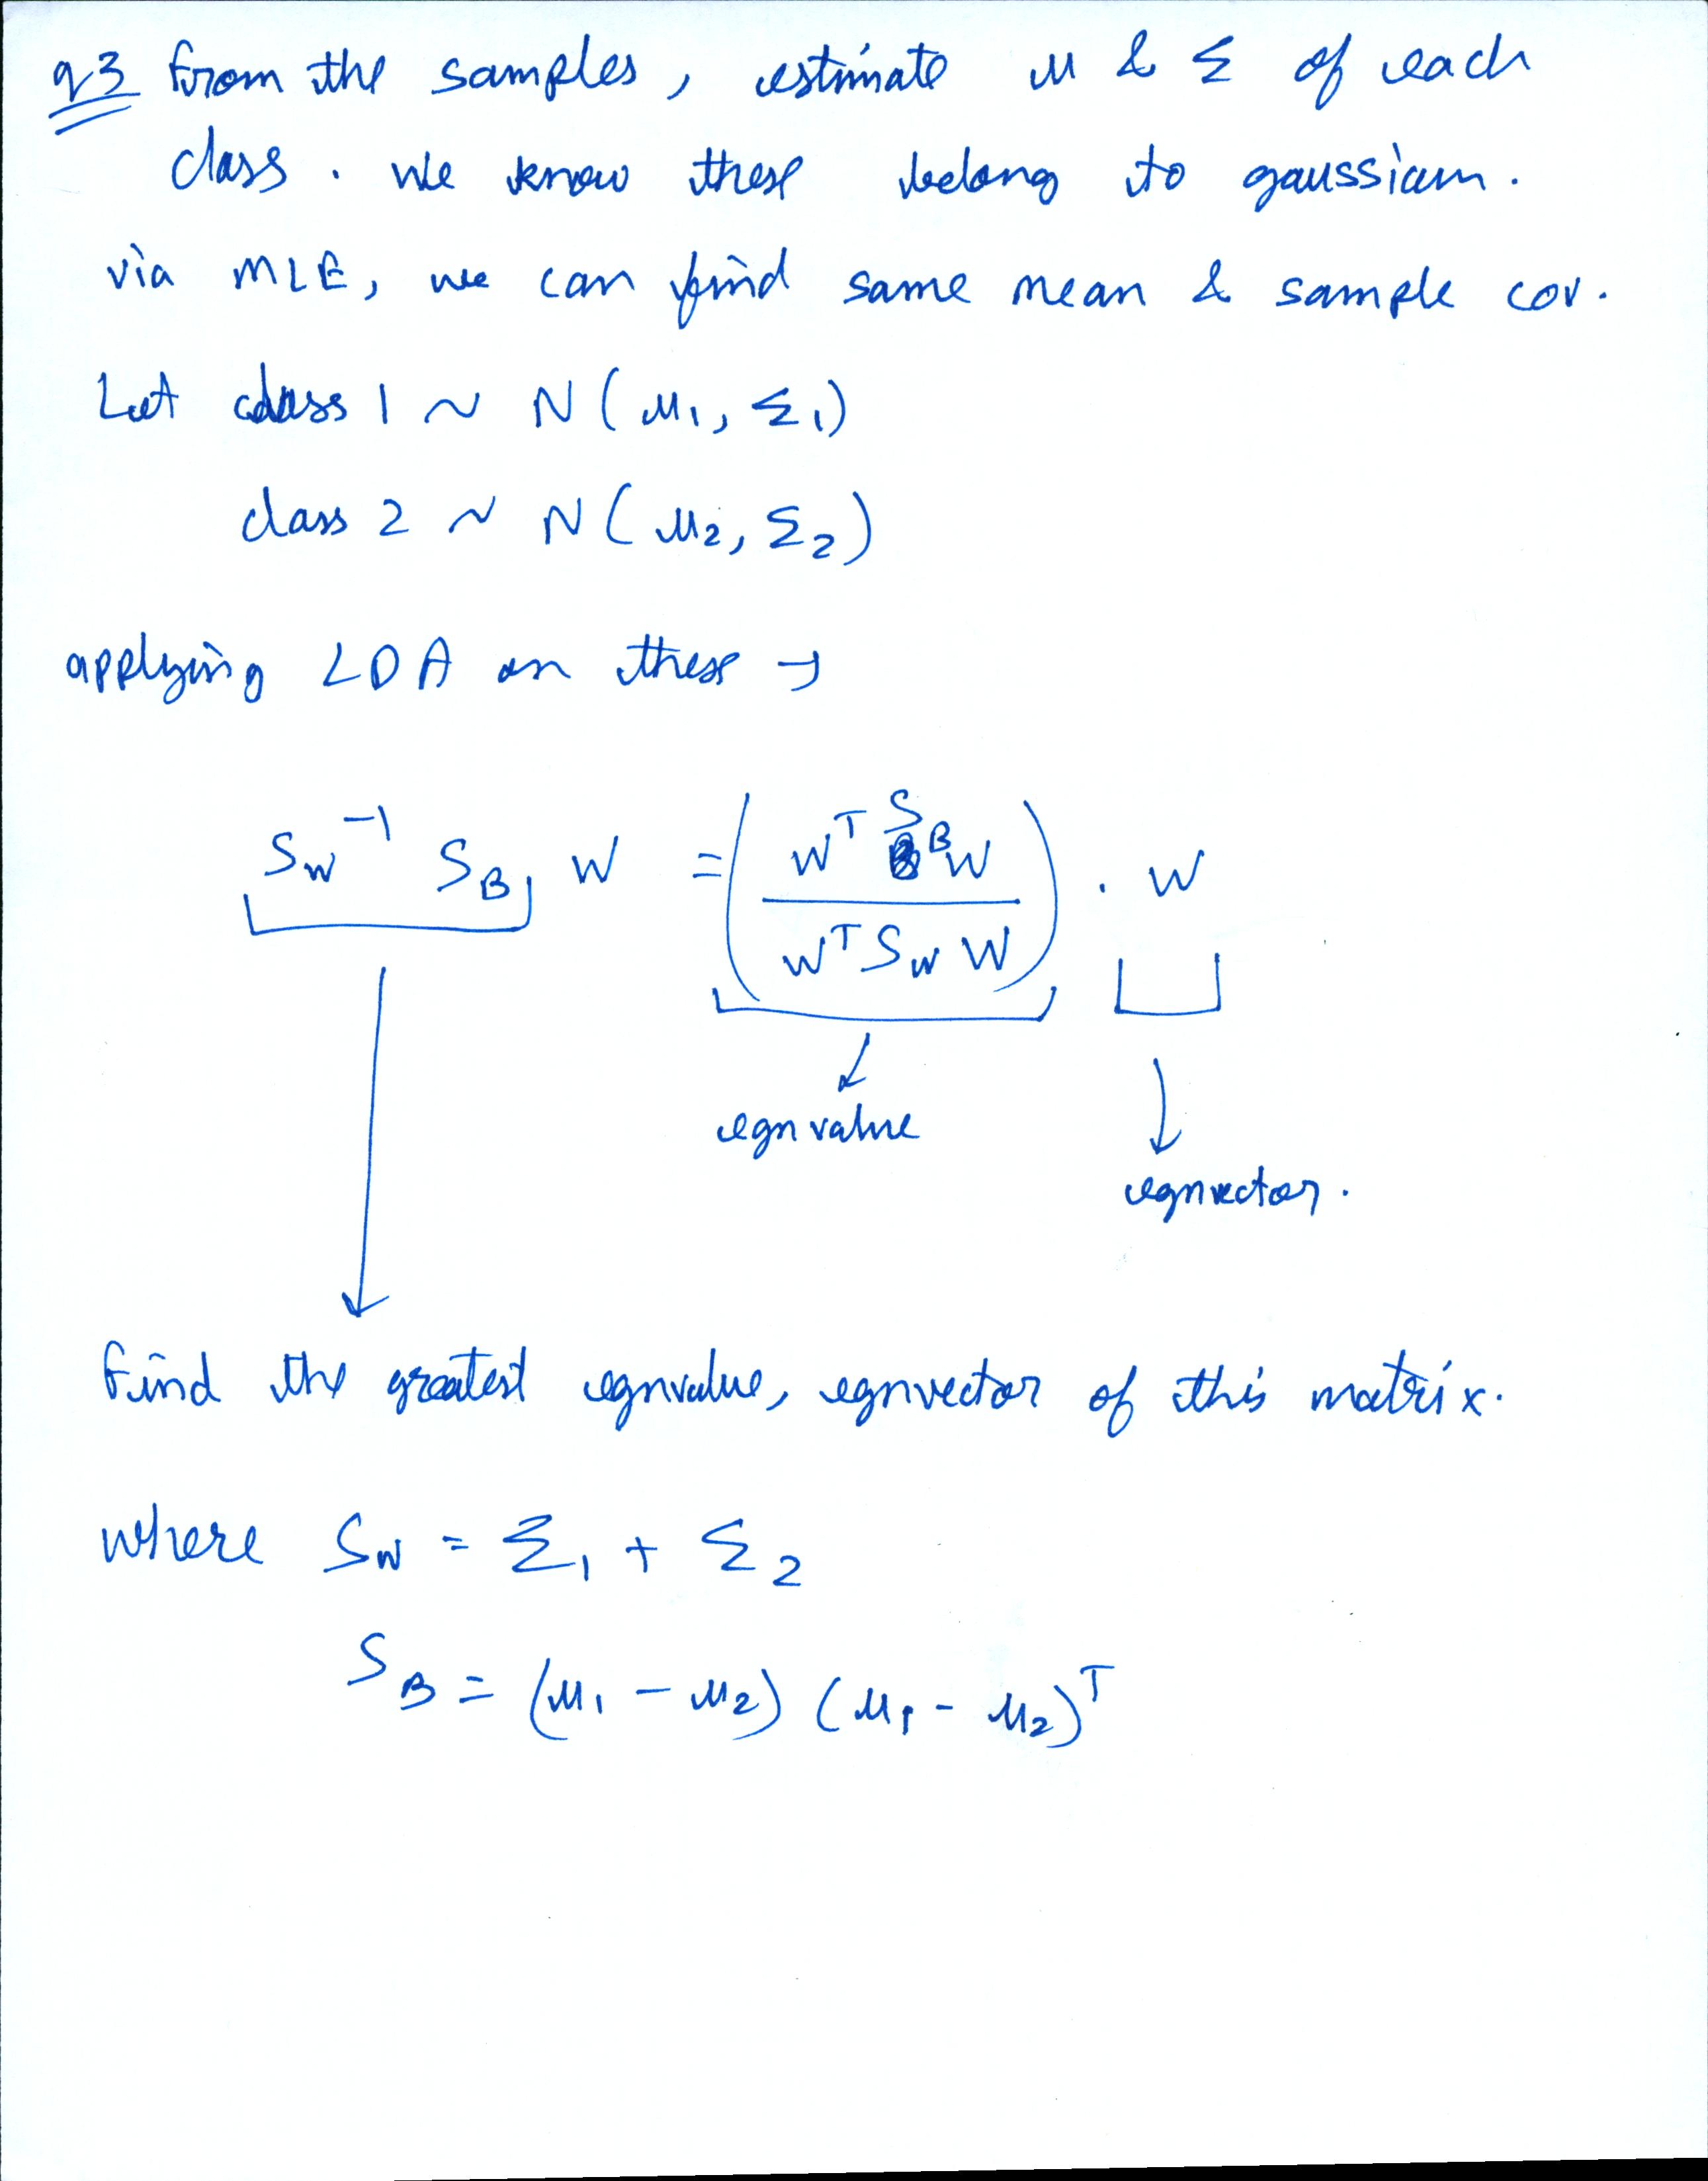 q3 From the samples, estimate μ & Σ of each
class. We know these belong to gaussian.
via MLE, we can find same mean & sample cov.
Let class 1 ~ N(μ₁, Σ₁)
class 2 ~ N(μ₂, Σ₂)
applying LDA on these →
S_W⁻¹ S_B W = (Wᵀ S_B W / Wᵀ S_W W) . W
egnvalue
egnvector.
Find the greatest egnvalue, egnvector of this matrix.
where S_W = Σ₁ + Σ₂
S_B = (μ₁ - μ₂) (μ₁ - μ₂)ᵀ